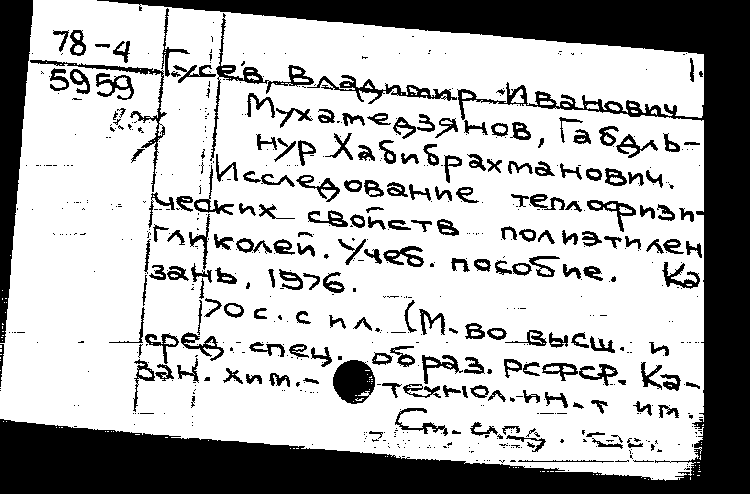 78-4
5959
1.
Гусев, Владимир Иванович
Мухамедзянов, Габдль-
нур Хабибрахманович.
Исследование теплофизи-
ческих свойств полиэтилен
гликолей. Учеб. пособие. Ка
зань, 1976.
70 с. с ил. (М-во высш. и
сред. спец. образ. РСФСР. Ка-
зан. хим.- технол. ин-т им.
См. след. карт.